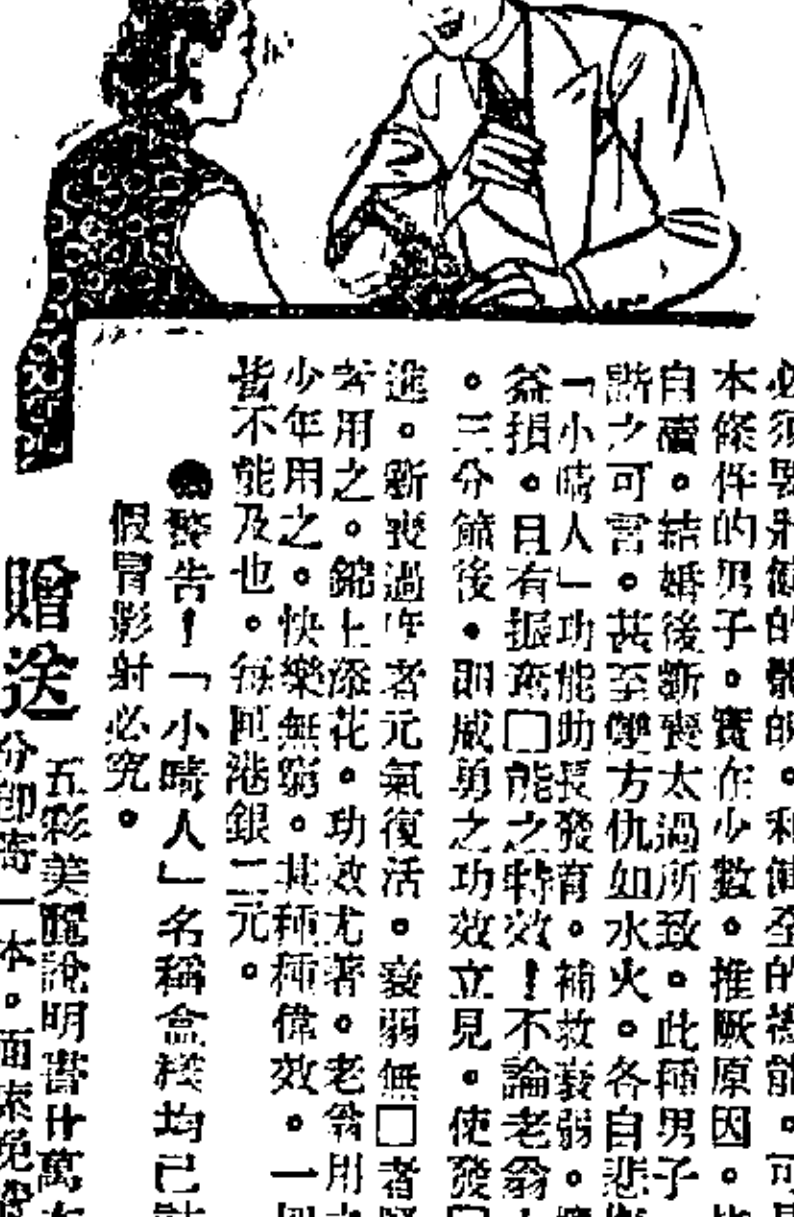 必須要壯健的體魄。和健全的機能。可
本條件的男子。實在少數。推厥原因。
自瀆。結婚後斲喪太過所致。此種男子
諧之可言。甚至雙方仇如水火。各自悲
「小晴人」功能助長發育。補救衰弱。
益損。且有振 □能之特效！不論老翁
。三分鐘後。即威勇之功效立見。使發□
進。斲喪過度者元氣復活。衰弱無□者
者用之。錦上添花。功效尤著。老翁用
少年用之。快樂無窮。其種種偉效。一
皆不能及也。每 港銀二元。
●警告！「小晴人」名稱盒 均已
假冒影射必究。
贈送
五彩美麗說明書廿萬
份郵寄一本。面索